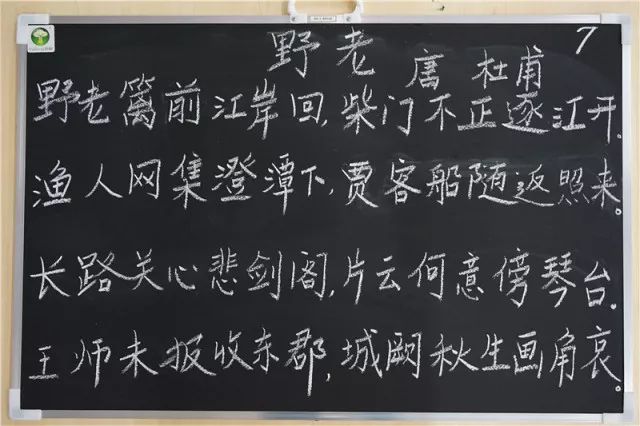 野老 唐 杜甫 7
野老篱前江岸回,柴门不正逐江开.
渔人网集澄潭下,贾客船随返照来。
长路关心悲剑阁,片云何意傍琴台.
王师未报收东郡,城阙秋生画角哀。